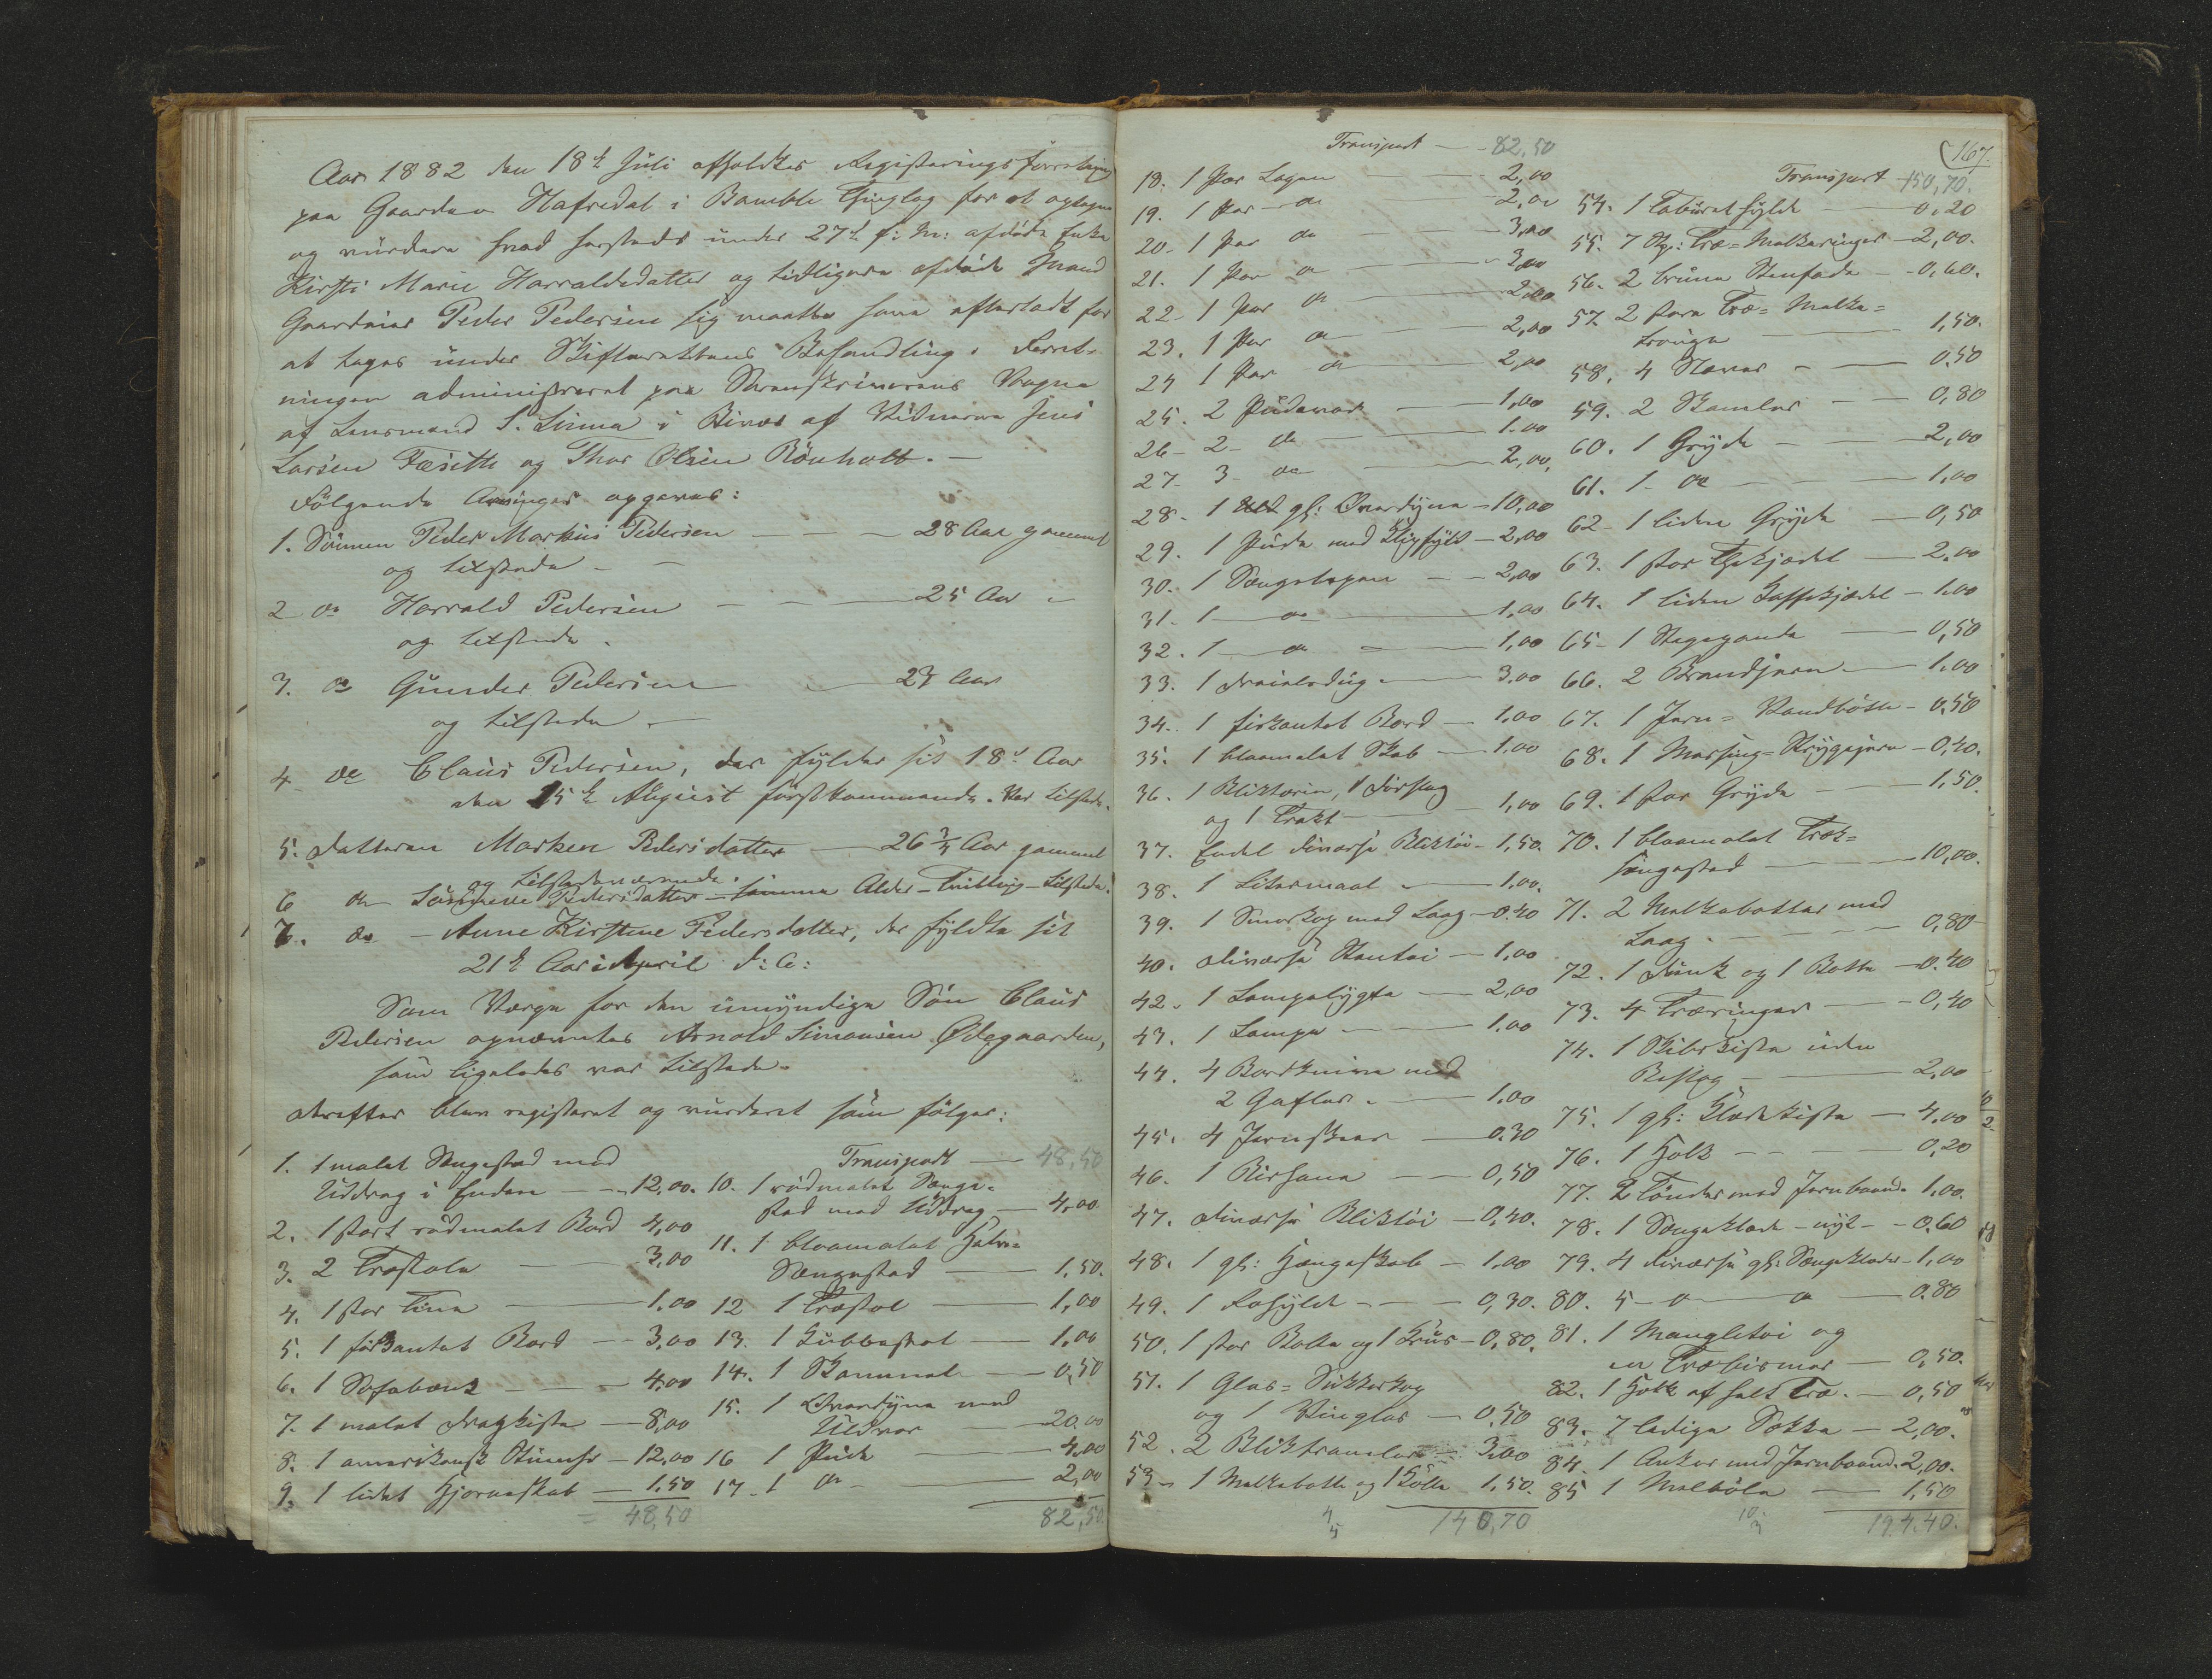 Aar 1882 den 18de Juli afholdtes Registreringsforretning
paa Gaarden Hafredal i Bamble Thinglag for at optegne
og vurdere hvad hersteds under 27de f: M: afdøde Enke
Kirsti Marie Harraldsdatter og tidligere afdøde Mand
Gaardeier Peder Pedersen sig maatte have efterladt for
at tages under Skifterettens Behandling. Forret-
ningen administreret paa Sorenskriverens Vegne
af Lensmand S. Linna i Bivær af Vidnerne Jens
Larsen Fæsitte og Thor Olsen Rönholt. —
Følgende Arvinger opgaves:
1. Sønnen Peder Markus Pedersen — 28 Aar gammel
og tilstede —
2 do Harrald Pedersen — 25 Aar —
og tilstede.
3. do Gunder Pedersen — 23 Aar
og tilstede —
4 do Claus Pedersen, der fylder sit 18de Aar
den 15de August førstkommende. Var tilstede.
5. Datteren Maren Pedersdatter — 26 3/4 Aar gammel
og tilstedeværende.
6 do Pedersdatter — samme Alder — Tvilling — tilstede.
7. do — Anne Kirstine Pedersdatter, der fyldte sit
21de Aar i April d: A:
Som Værge for den umyndige Søn Claus
Pedersen opnævntes Arnold Simonsen Ødegaarden,
som ligeledes var tilstede.
Derefter blev registeret og vurderet som følger:
1. 1 malet Sengested med
Uddrag i Enden — 12,00.
2. 1 stort rødmalet Bord 4,00
3. 2 Træstole — 3,00
4. 1 stor Tine — 1,00
5. 1 firkantet Bord — 3,00
6. 1 Sofabænk — 4,00
7. 1 malet Dragkiste — 8,00
8. 1 amerikansk Stueuhr — 12,00
9. 1 lidet Hjørneskab — 1,50
= 48,50
Transport — 48,50
10. 1 rødmalet Senge-
sted med Uddrag — 4,00
11. 1 blaamalet Halv-
Sengested — 1,50.
12 1 Træstol — 1,00
13. 1 Kubbestol — 1,00
14. 1 Skammel — 0,50
15. 1 Overdyne med
Uldvor — 20.00
16 1 Pude — 4,00
17 - 1 do — 2,00
82,50
Transport — 82,50
18. 1 Par Lagen — 2,00
19. 1 Par do — 2,00
20 - 1 Par do — 3,00
21. 1 Par do — 3,00
22 - 1 Par do — 2,00
23. 1 Par do — 2,00
24 1 Par do — 2,00
25. 2 Pudevor — 1,00
26 - 2 - do — 1.00
27 - 3 - do — 2,00,
28 - 1 gl: Overdyne — 10,00
29. 1 Pude med Fyld — 2,00
30. 1 Sengetæppe — 2,00
31. 1 — do — 1,00
32. 1 — do — 1,00
33. 1 Dreielsdug — 3.00
34. 1 firkantet Bord — 1,00
35. 1 blaamalet Skab — 1.00
36. 1 Blikterin, 1 Dørslag
og 1 Trakt — 1,00
37. Endel diverse Bliktøi — 1,50.
38. 1 Litermaal — 1,00.
39. 1 Smørkop med Laag — 0.40
40. Diverse Stentøi — 1,00
42. 1 Lampelygte — 2,00
43. 1 Lampe — 1.00
44. 4 Bordknive med
2 Gafler — 1.00
45. 4 Jernskeer — 0.30
46. 1 — 0,50
47. Diverse Bliktøi — 0,40.
48. 1 gl: Hængeskab — 1,00
49. 1 — 0,30.
50. 1 stor Bolle og 1 Krus — 0,80.
51. 1 Glas-Sukkerkop
og 1 Vinglas — 0,50
52. 2 Bliktraller — 3,00
53 - 1 Melkebøtte og 1 Kolle 1,50.
4
5
140,70
167.
Transport 150,70.
54. 1 — 0,20
55. 7 Stp: Træ-Melkeringer — 2,00.
56. 2 brune Stenfade — 0,60.
57. 2 store Træ-Melke-
trauge — 1,50.
58. 4 — 0,50
59. 2 Skamler — 0,80
60. 1 Gryde — 2,00
61. 1 - do — 1,00
62 - 1 liden Gryde — 0,50
63. 1 stor Thekjedel — 2.00
64. 1 liden Kaffekjedel — 1.00
65 - 1 Stegepande — 0,50
66. 2 Brandjern — 1.00
67. 1 Jern-Vandbøtte — 0.50
68. 1 Messing-Strygejern — 0,40.
69. 1 stor Gryde — 1,50.
70. 1 blaamalet Træk-
sengested — 10,00.
71. 2 Melkebøtter med
Laag — 0,80
72. 1 Dunk og 1 Bøtte — 0.40
73. 4 Træringer — 0,40
74. 1 Skibskiste uden
Beslag — 2,00
75. 1 gl: Klædekiste — 4,00
76. 1 Holk — 0,20
77. 2 Tønder med Jernbaand. 1,00.
78. 1 Sengeklæde — nyt — 0.60
79. 4 diverse gl: Sengeklæder — 1,00
80. 5 - do do — 0.80
81. 1 Mangletøi og
en Træbismer — 0,50.
82. 1 Holk af helt Træ. — 0,50
83. 7 ledige Sække — 2,00.
84. 1 Anker med Jernbaand. 2,00.
85 1 Melbøle — 1,50
10
3
194.40.